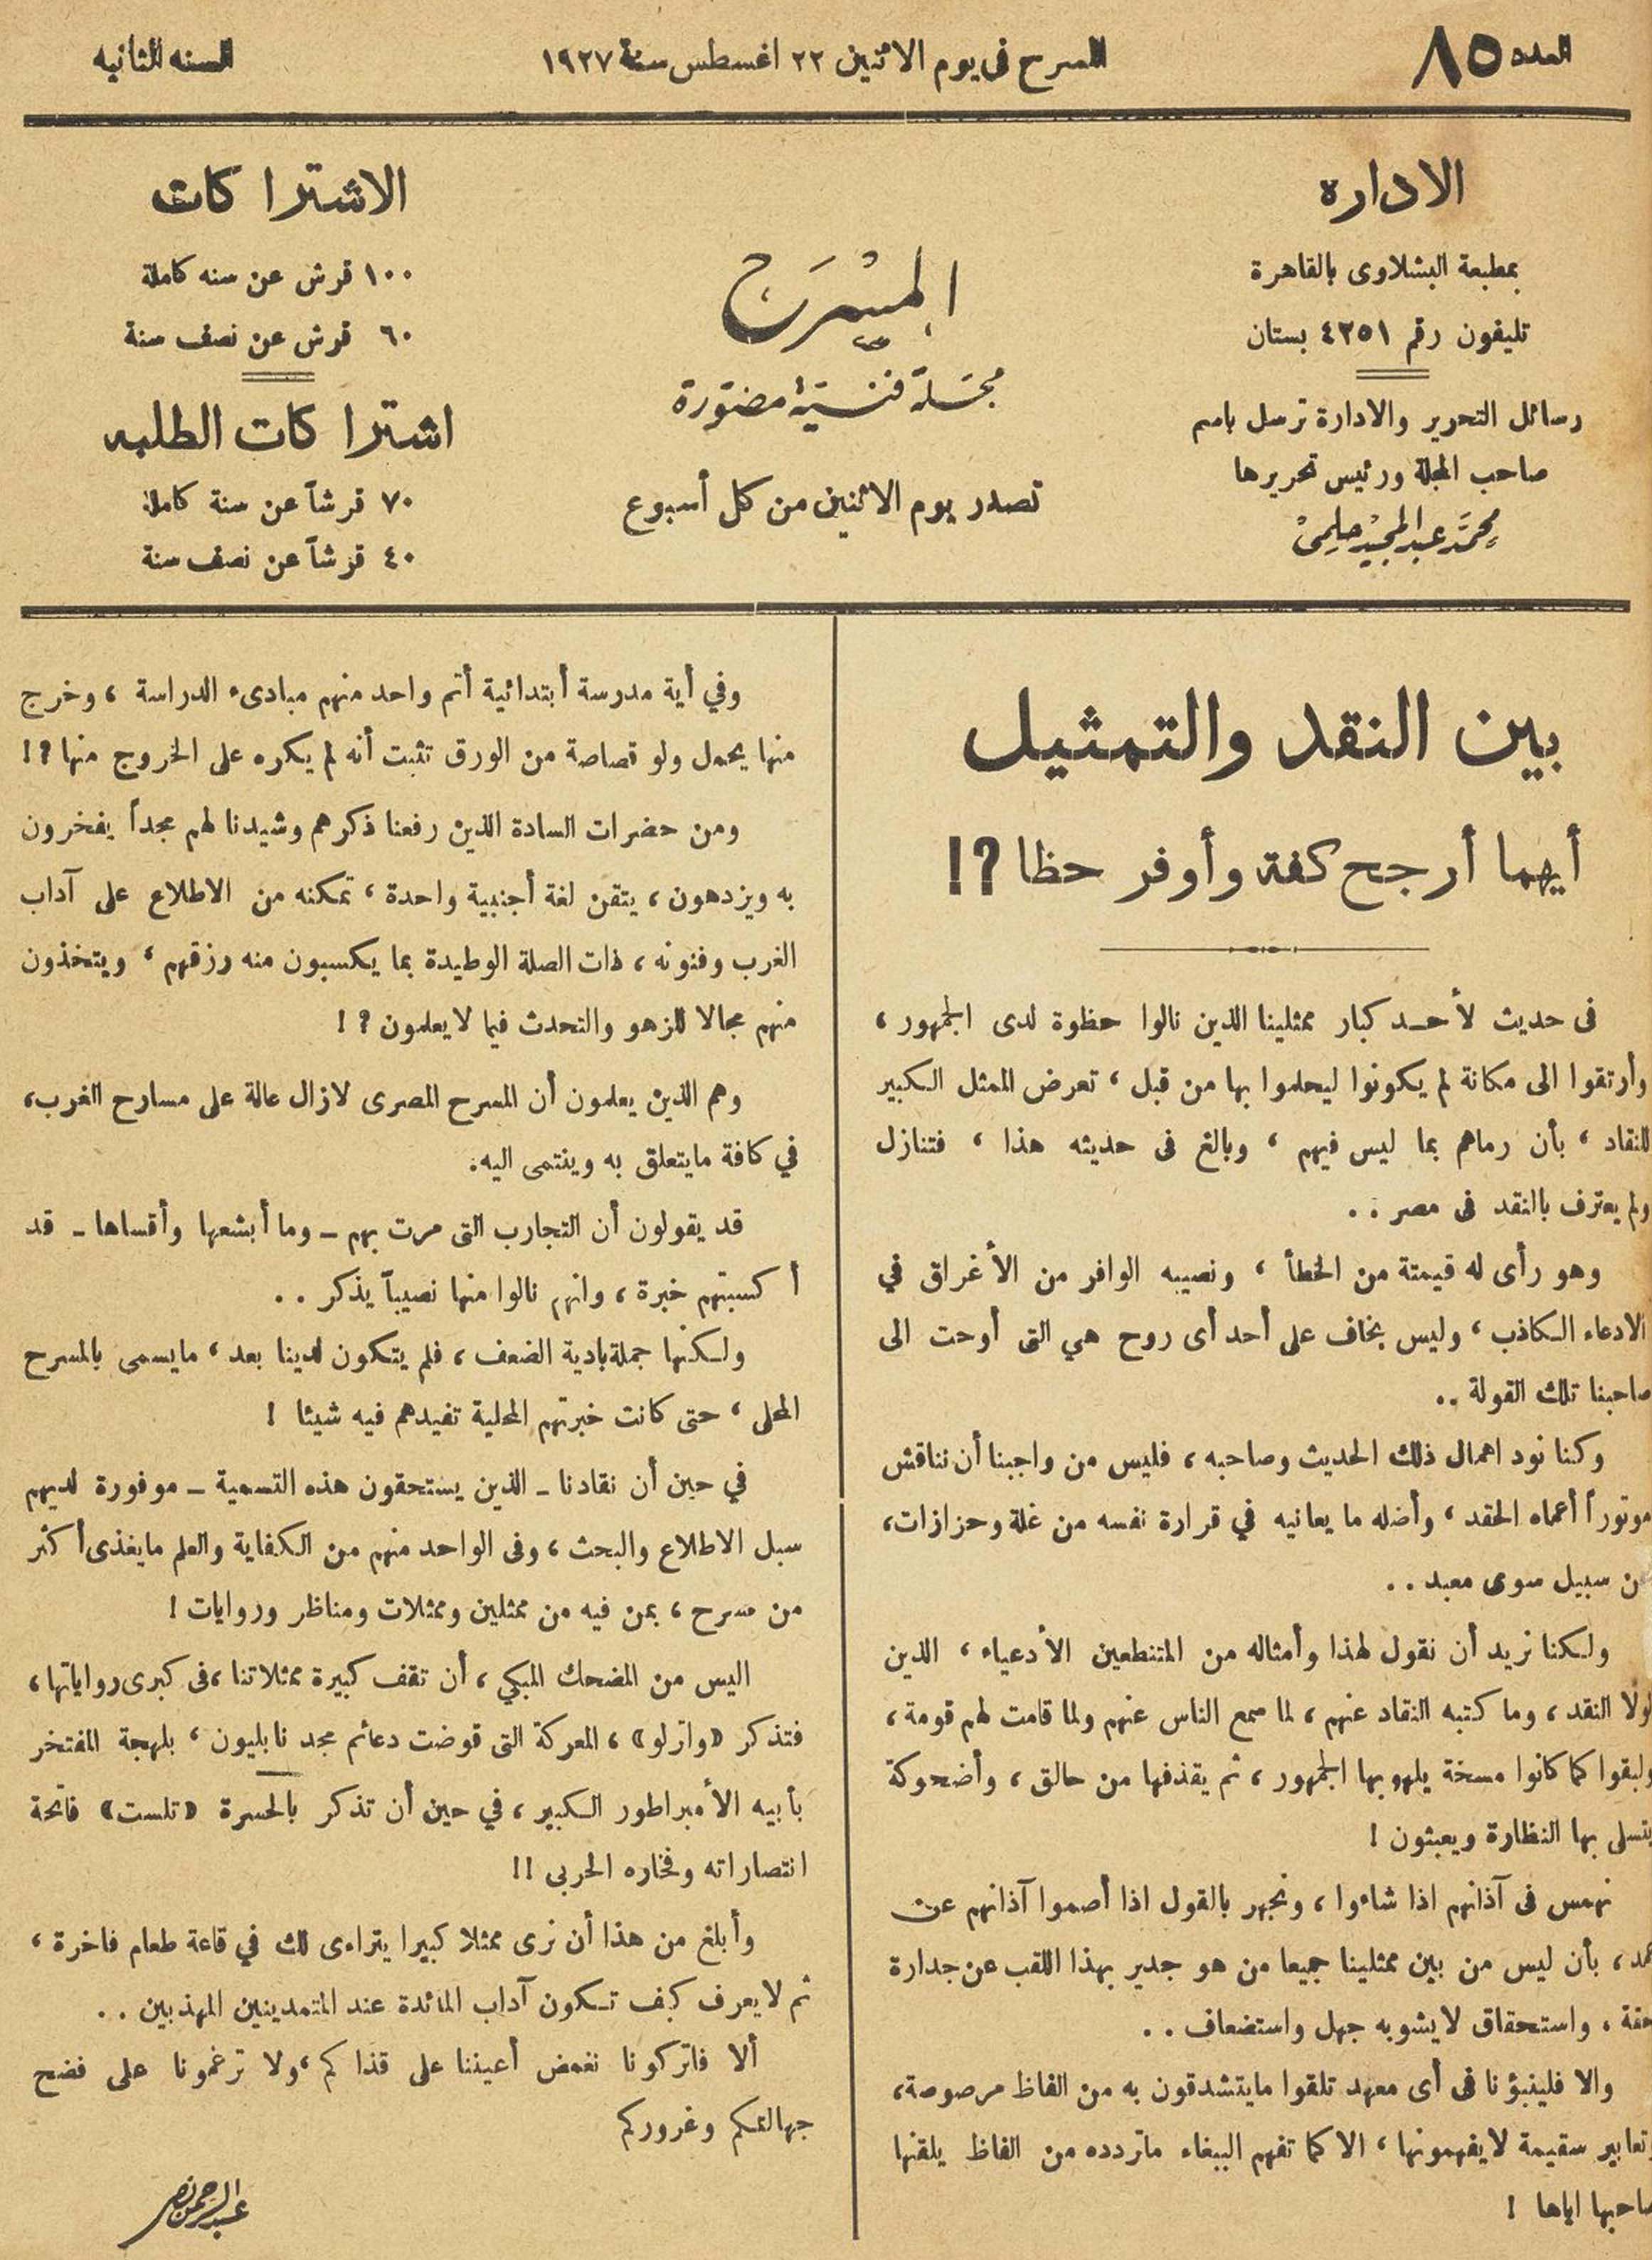 العدد ٨٥
المسرح فى يوم الاثنين ٢٢ اغسطس سنة ١٩٢٧
السنه الثانيه
الاداره
بمطبعة البشلاوى بالقاهرة
تليفون رقم ٤٢٥١ بستان
رسائل التحرير والادارة ترسل باسم
صاحب المجلة ورئيس تحريرها
محمد عبد المجيد حلمى
المسرح
مجلة فنية مصورة
تصدر يوم الاثنين من كل أسبوع
الاشتراكات
١٠٠ قرش عن سنه كاملة
٦٠ قرش عن نصف سنة
اشتراكات الطلبه
٧٠ قرشاً عن سنة كاملة
٤٠ قرشاً عن نصف سنة
بين النقد والتمثيل
أيهما أرجح كفة وأوفر حظا ؟!
فى حديث لأحد كبار ممثلينا الذين نالوا حظوة لدى الجمهور ،
وأرتقوا الى مكانة لم يكونوا ليحلموا بها من قبل ، تعرض الممثل الكبير
للنقاد ، بأن رماهم بما ليس فيهم ، وبالغ فى حديثه هذا ، فتنازل
ولم يعترف بالنقد فى مصر . .
وهو رأى له قيمتة من الخطأ ، ونصيبه الوافر من الأغراق في
الادعاء الكاذب ، وليس بخاف على أحد أى روح هي التى أوحت الى
صاحبنا تلك القولة . .
وكنا نود اهمال ذلك الحديث وصاحبه ، فليس من واجبنا أن نناقش
موتوراً أعماه الحقد ، وأضله ما يعانيه في قرارة نفسه من غلة وحزازات ،
عن سبيل سوى معبد . .
ولكنا نريد أن نقول لهذا وأمثاله من المتنطعين الأدعياء ، الذين
لولا النقد ، وما كتبه النقاد عنهم ، لما سمع الناس عنهم ولما قامت لهم قومة ،
ولبقوا كما كانوا مسخة يلهو بها الجمهور ، ثم يقذفها من حالق ، وأضحوكة
يتسلى بها النظارة ويعبثون !
نهمس فى آذانهم اذا شاءوا ، ونجهر بالقول اذا أصموا آذانهم عن
عمد ، بأن ليس من بين ممثلينا جميعا من هو جدير بهذا اللقب عن جدارة
حقة ، واستحقاق لا يشوبه جهل واستضعاف . .
والا فلينبؤنا فى أى معهد تلقوا مايتشدقون به من الفاظ مرصوصة ،
وتعابير سقيمة لا يفهمونها ، الا كما تفهم الببغاء ماتردده من الفاظ يلقنها
صاحبها اياها !
وفي أية مدرسة أبتدائية أتم واحد منهم مبادىء الدراسة ، وخرج
منها يحمل ولو قصاصة من الورق تثبت أنه لم يكره على الخروج منها ؟!
ومن حضرات السادة الذين رفعنا ذكرهم وشيدنا لهم مجداً يفخرون
به ويزدهون ، يتقن لغة أجنبية واحدة ، تمكنه من الاطلاع على آداب
الغرب وفنونه ، ذات الصلة الوطيدة بما يكسبون منه رزقهم ، ويتخذون
منهم مجالا للزهو والتحدث فيما لايعلمون ؟ !
وهم الذين يعلمون أن المسرح المصرى لازال عالة على مسارح الغرب ،
في كافة مايتعلق به وينتمى اليه .
قد يقولون أن التجارب التى مرت بهم ـ وما أبشعها وأقساها ـ قد
أكسبتهم خبرة ، وانهم نالوا منها نصيباً يذكر . .
ولكنها جملة بادية الضعف ، فلم يتكون لدينا بعد ، مايسمى بالمسرح
المحلى ، حتى كانت خبرتهم المحلية تفيدهم فيه شيئا !
في حين أن نقادنا ـ الذين يستحقون هذه التسمية ـ موفورة لديهم
سبل الاطلاع والبحث ، وفى الواحد منهم من الكفاية والعلم مايغذى أكثر
من مسرح ، بمن فيه من ممثلين وممثلات ومناظر وروايات !
اليس من المضحك المبكي ، أن تقف كبيرة ممثلاتنا ، فى كبرى رواياتها ،
فتذكر «واترلو» ، المعركة التى قوضت دعائم مجد نابليون ، بلهجة المفتخر
بأبيه الأمبراطور الكبير ، في حين أن تذكر بالحسرة «تلست» فاتحة
انتصاراته وفخاره الحربى !!
وأبلغ من هذا أن نرى ممثلا كبيرا يتراءى لك في قاعة طعام فاخرة ،
ثم لا يعرف كيف تكون آداب المائدة عند المتمدينين المهذبين . .
ألا فاتركونا نغمض أعيننا على قذاكم ، ولا ترغمونا على فضح
جهالتكم وغروركم
عبد الرحمن نصر